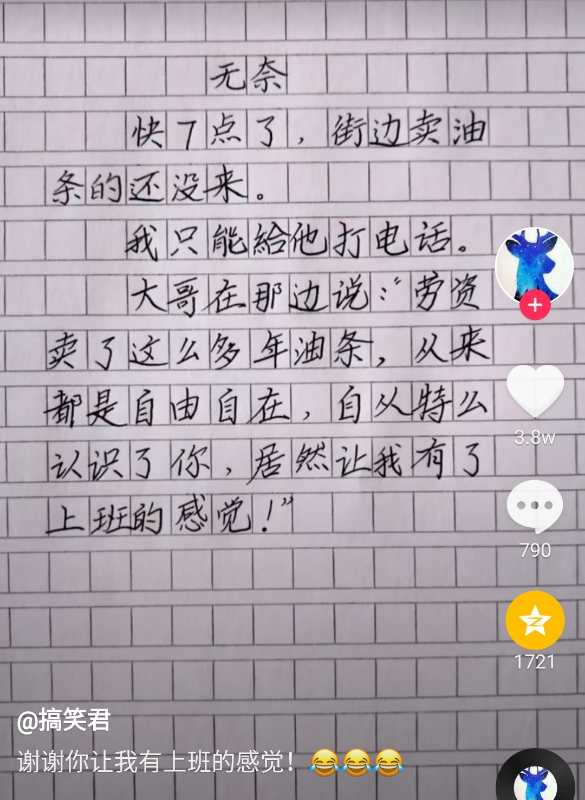 无奈
快7点了，街边卖油
条的还没来。
我只能給他打电话。
大哥在那边说：“劳资
卖了这么多年油条，从来
都是自由自在，自从特么
认识了你，居然让我有了
上班的感觉！”
3.8w
790
1721
@搞笑君
谢谢你让我有上班的感觉！😂😂😂